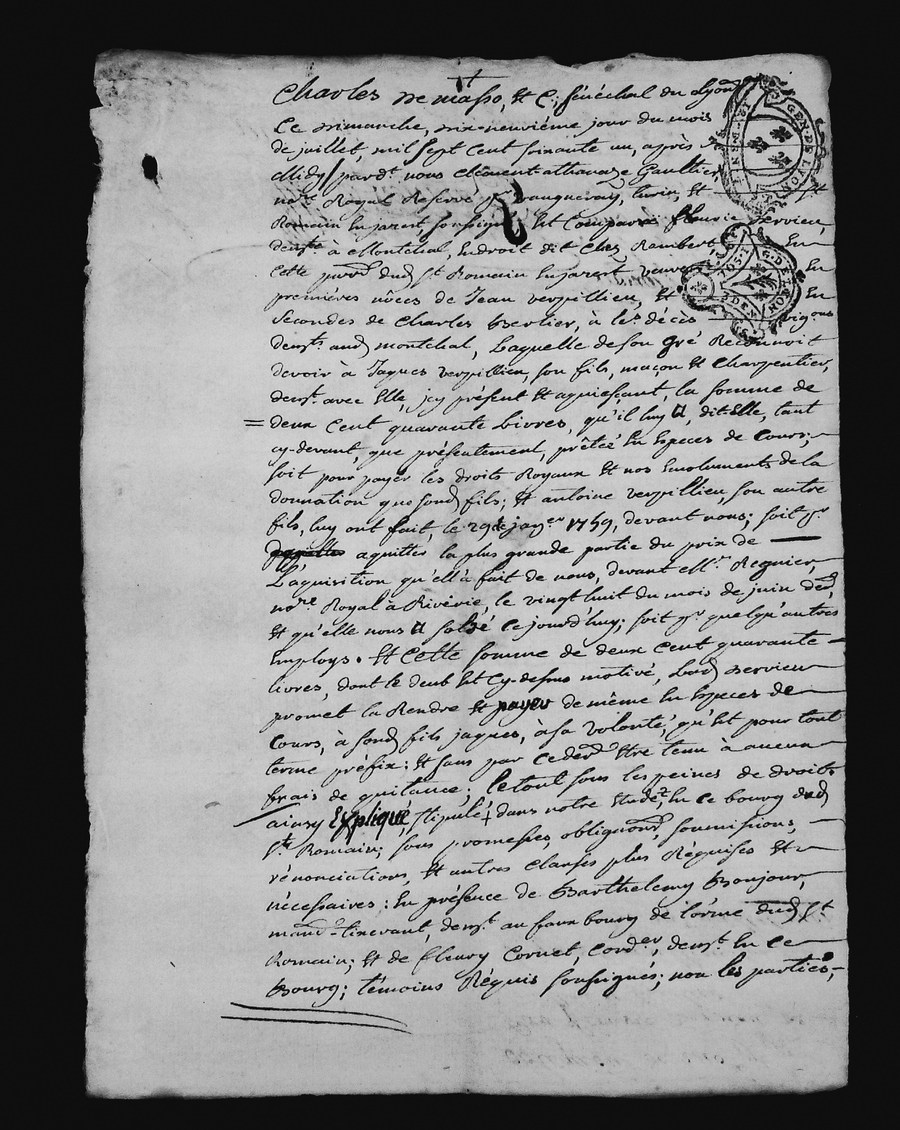 Charles De masso, Et C: sénéchal du Lyon
Ce Dimanche, Dix-neuvième jour du mois
de juillet, mil sept cent soixante un, après
Midy, pard.t nous Clément-athanaze Gaultier
no.re Royal Reservé p.r Lurin, Et St
Romain En jarest, soussigné Est Comparüe fleurie Dervieu,
dem.te à Montchal, Endroit dit Chez Rambert En
Cette parr. dud. St Romain En jarest, veuve En
premières nôces de Jean verpillieu, Et En
Secondes de Charles Bertier, à Les décès
dem.t aud. montchal, Laquelle de son gré Reconnoit
devoir à Jaques verpillieu, son fils, maçon Et Charpentier,
dem.t avec Elle, icy présent Et aquiesçant, la somme de
deux Cent quarante Livres, qu'il luy a, dit-Elle, tant
cy-devant, que présentement, prêtée En Especes de Cours;
soit pour payer les droits Royaux Et nos Emoluments de la
donnation que sond. fils; Et antoine verpillieu, son autre
fils, luy ont fait, le 29e jan.er 1759, devant nous; soit p.r
aquitter la plus grande partie du prix de
L'aquisition qu'ell'à fait de nous, devant M.e Regnier,
no.re Royal à Riverie, le vingt huit du mois de juin der.,
Et qu'elle nous a soldé ce jourd'huy; soit p.r quelqu'autres
Employs. Et Cette somme de deux Cent quarante
livres, dont le deub Est Cy-dessus motivé, lad. Dervieu
promet la Rendre Et payer de même En Especes de
Cours, à sond. fils jaques, à sa volonté, qu'Est pour tout
terme préfix; Et sans par Ce der. Etre tenu à aucun
frais de quitance; le tout sous les peines de droit,
ainsy Expliqué, stipulé dans notre Etude, En ce bourg dud.
St. Romain; sous promesses, obligaons, soumissions,
rénonciations, Et autres Clauses plus Réquises Et
nécessaires: En présence de Barthelemy Bonjour,
mand-tinevant, dem.t au faux bourg de l'orme dud. St
Romain; Et de fleury Cornet, Cord.er, dem.t En Ce
Bourg; témoins Réquis soussignés; non les parties,
GEN. DE LYON
G. DE LYON